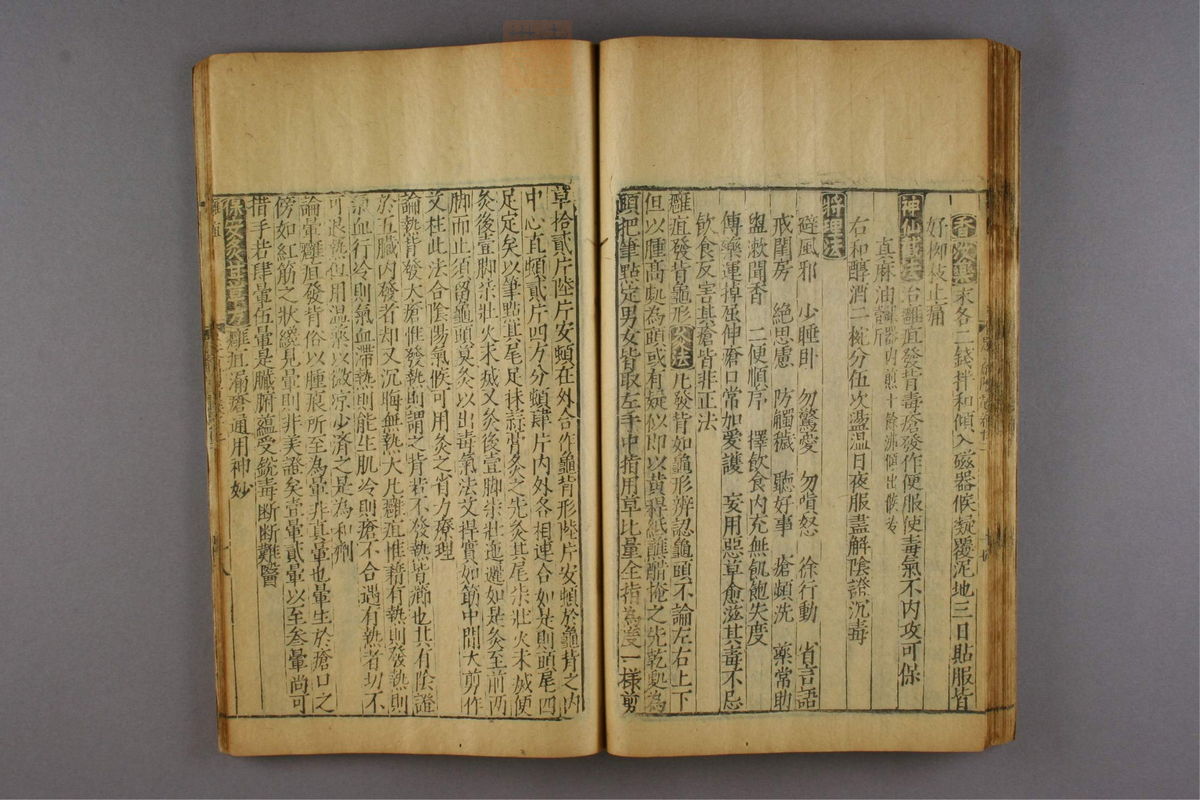 末各二錢拌和傾入磁器候凝覆泥地三日貼服皆
好柳枝止痛
神仙截法 治癰疽發背毒瘡發作便服使毒氣不内攻可保
真麻油
右和醇酒二椀分伍次溫日夜服盡解陰證沉毒
將理法
避風邪 少睡卧 勿驚憂 勿嗔怒 徐行動 省言語
戒閨房 絶思慮 防觸穢 聽好事 瘡頻洗 藥常助
盥漱聞香 二便順序 擇飲食内充無飢飽失度
傳藥運掉屈伸瘡口常加愛護 妄用惡草愈滋其毒不忌
飲食反害其瘡皆非正法
癰疽發背龜形灸法 凡發背如龜形辨認龜頭不論左右上下
但以腫高處為頭或有疑似即以黃稈紙蘸醋掩之先乾處為
頭把筆點定男女皆取左手中指用草比量全指為度一樣剪
草拾貳片陸片安頓在外合作龜背形陸片安頓於龜背之内
中心直頓貳片四方分頓肆片内外各相連合如是則頭尾四
足定矣以筆點宜尾足抹蒜膏灸之先灸其尾柒壯火未滅便
灸後壹脚柒壯火未滅又灸後壹脚柒壯迤邐如是灸至前两
脚而止須留龜頭莫灸以出毒氣法文捍實如筯中間大剪作
文柱此法合陰陽氣候可用灸之省力療理
論熱背發大瘡惟發熱則謂之背若不發熱皆瘤也其有陰證
於五臟内發者却又沉晦無熱大凡癰疽惟藉有熱則發熱則
氣血行冷則氣血滯熱則能生肌冷則瘡不合遇有熱者切不
可退熱但用溫藥以微凉少濟之是為和劑
論暈癰疽發背俗以腫痕所至為暈非真暈也暈生於瘡口之
傍如紅筋之狀纔見暈則非美證矣壹暈貳暈以至叁暈尚可
措手若肆暈伍暈是臟腑蘊受銳毒斷斷難醫
癰疽漏瘡通用神妙